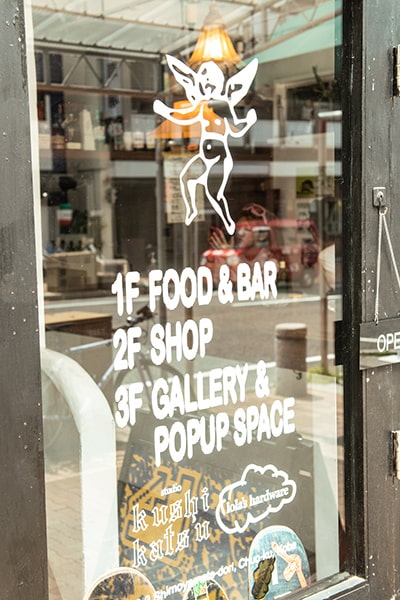 1F FOOD & BAR
2F SHOP
3F GALLERY &
POPUP SPACE
studio
kushi
katsu
lola's hardware
OPE